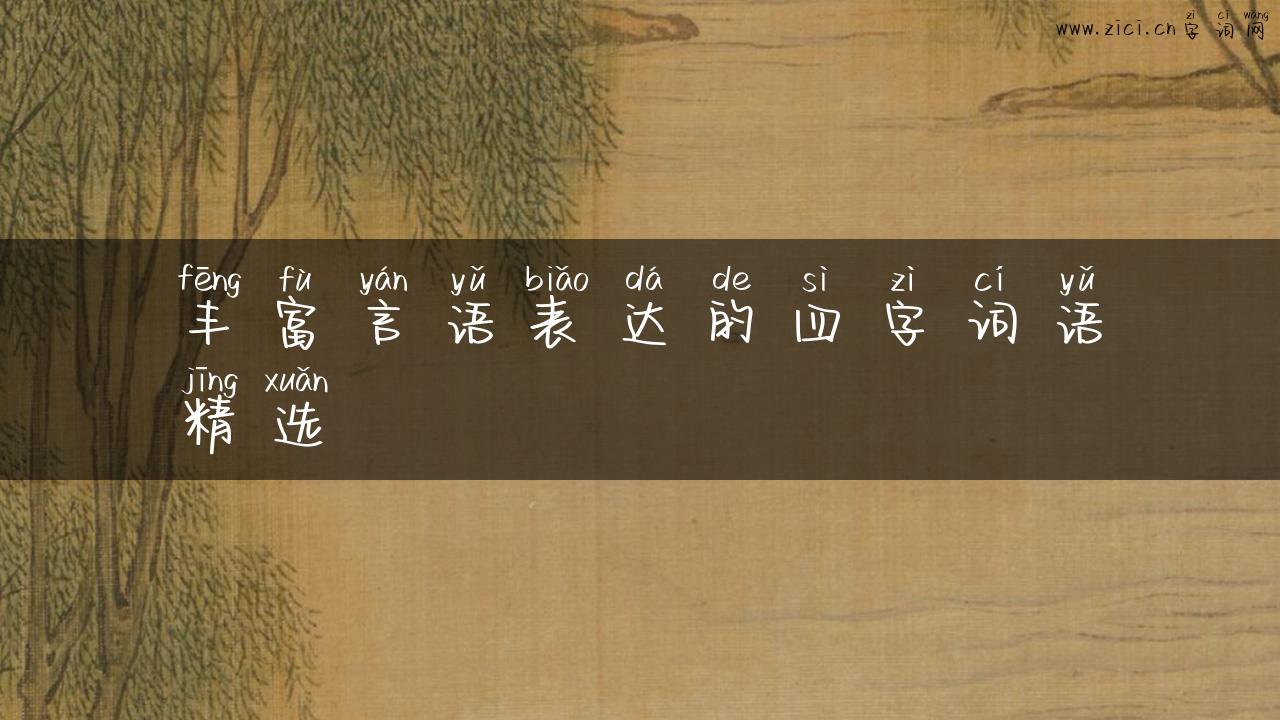 zì cí wǎng
www.zici.cn字词网
fēng fù yán yǔ biǎo dá de sì zì cí yǔ
丰富言语表达的四字词语
jīng xuǎn
精选